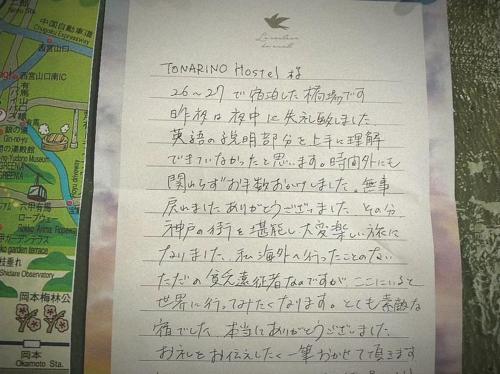 中国自動車道
Chugoku Expressway
西宮山口
西宮山口南IC
銀の湯
Gin-no-yu
Yudono Museum
六甲有馬
ロープウェー
Rokko Arima Ropeway
ko garden terrace
Shidare Observatory
岡本梅林公
岡本
Okamoto Sta.
TONARINO HOSTEL 様
26〜27で宿泊した橋場です
昨夜は夜中に失礼致しました。
英語の説明部分を上手に理解
できていなかったと思います。時間外にも
関わらずお手数おかけしました。無事
戻れました ありがとうございました。その分
神戸の街を堪能し大変楽しい旅に
なりました。私海外へ行ったことのない
ただの貧乏遠征者なのですが ここにいると
世界に行ってみたくなります。とても素敵な
宿でした 本当にありがとうございました
お礼をお伝えしたく一筆おかせて頂きます